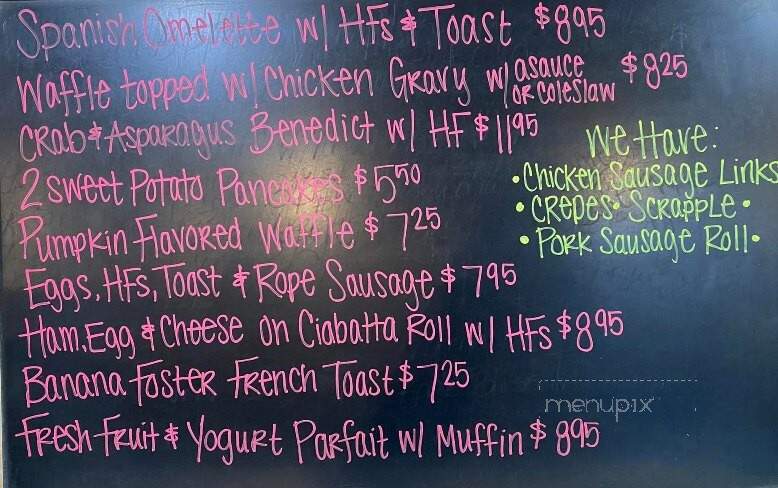 Spanish Omelette w/ HFs & Toast $895
Waffle topped w/ Chicken Gravy w/ asauce or coleslaw $825
Crab & Asparagus Benedict w/ HF $1195
2 Sweet Potato Pancakes $550
Pumpkin Flavored Waffle $725
Eggs, HFs, Toast & Rope Sausage $795
Ham, Egg & Cheese on Ciabatta Roll w/ HFs $895
Banana Foster French Toast $725
Fresh Fruit & Yogurt Parfait w/ Muffin $895
We Have:
• Chicken Sausage Links
• Crepes • Scrapple •
• Pork Sausage Roll •
menupix